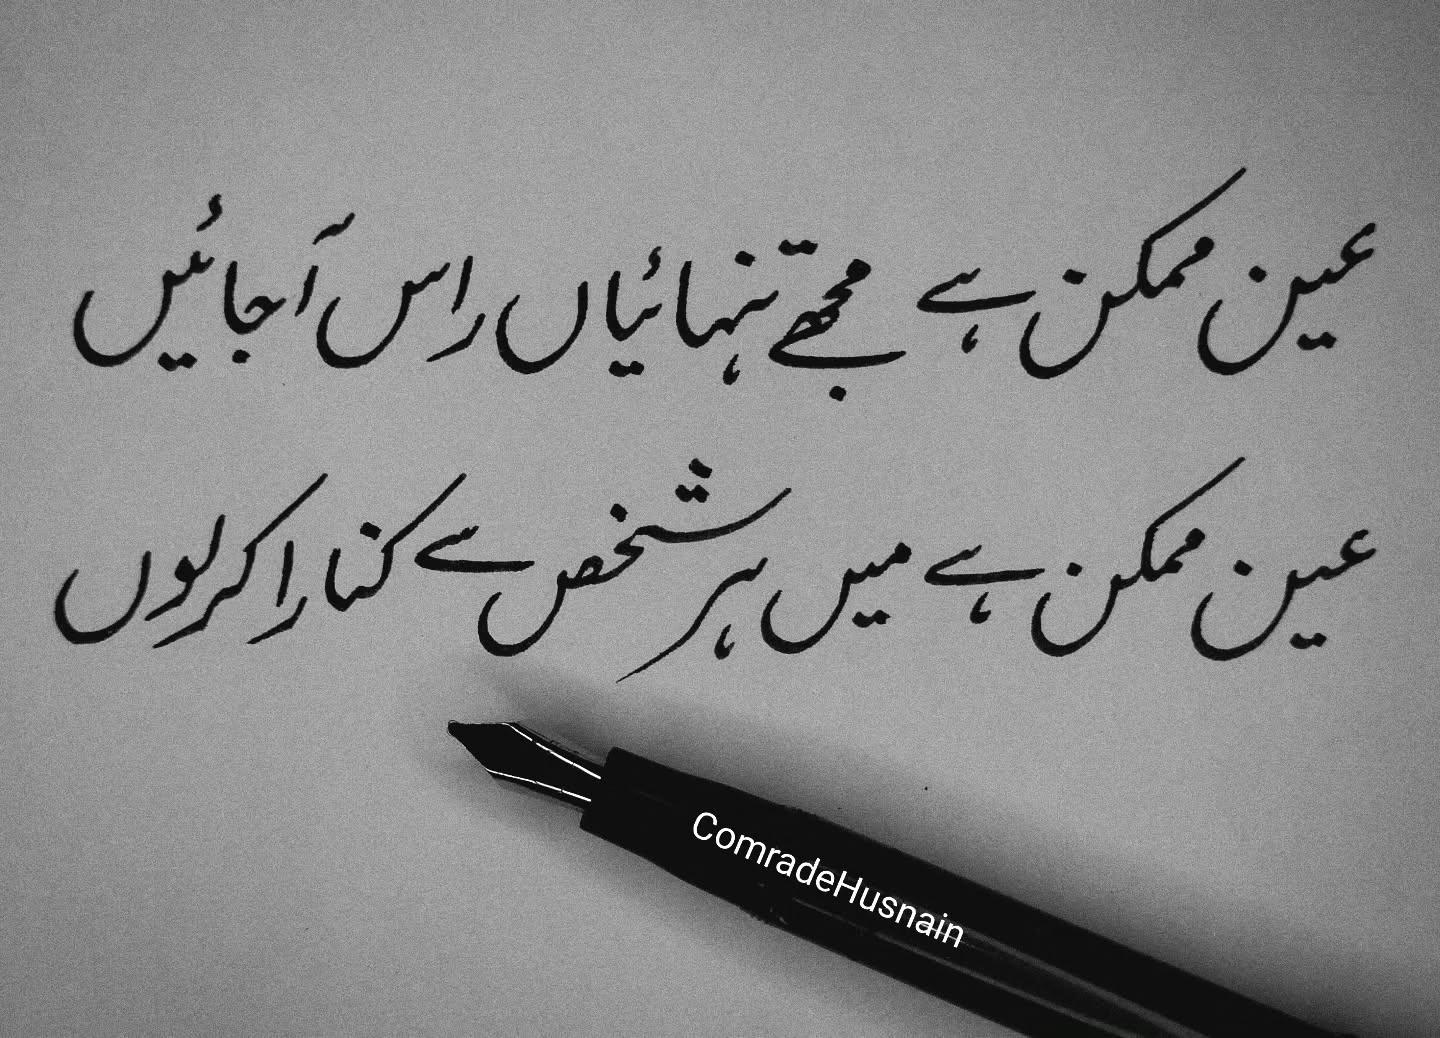 عین ممکن ہے مجھے تنہائیاں راس آجائیں
عین ممکن ہے میں ہر شخص سے کنارا کر لوں
ComradeHusnain